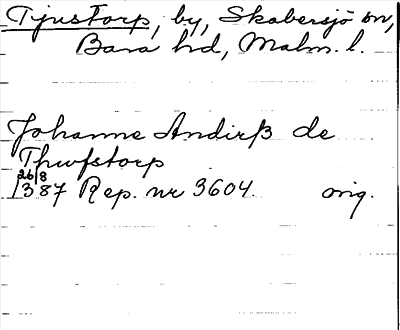 Tjustorp, by, Skabersjö sn,
Bara hd, Malm. l.
Johanne Andirß de
Thwfstorp
26/8
1387 Rep. nr 3604. orig.